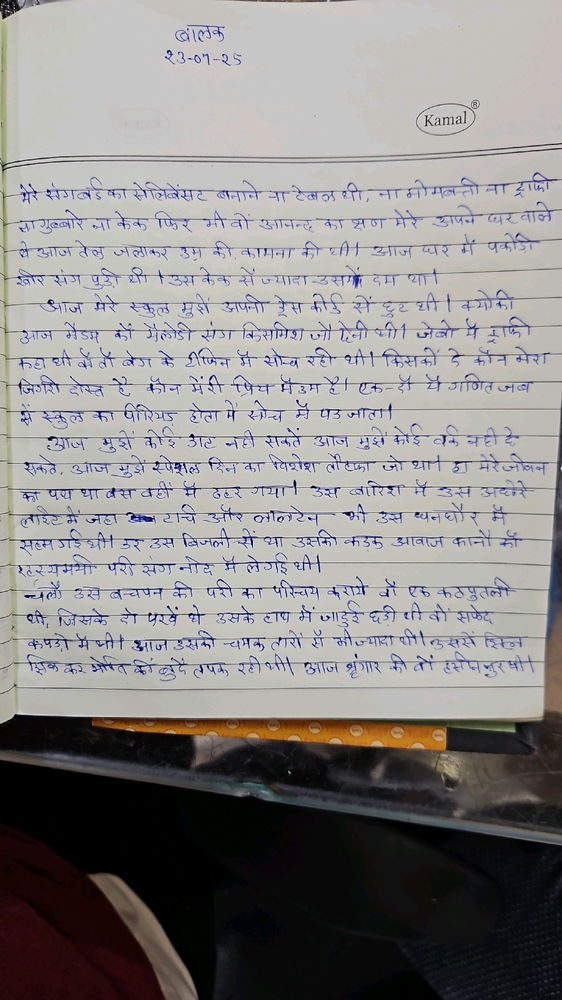 बालक
23-07-25
Kamal®
मेरे संग बर्ड का सेलिबेंसट बनाने ना टेबल थी, ना मोमबती ना ट्राफी
ना गुब्बारे ना केक फिर भी वों आनन्द का क्षण मेरे अपने घर वाले
ने आज तेल जलाकर उम्र की कामना की थी। आज घर में पकोडी
खीर संग पुडी थी। उस केक सें ज्यादा उसमें दम था।
आज मेरे स्कुल मुझें अपनी ड्रेस कोर्ड सें छुट थी। क्योकी
आज मेंडम कों मेंलोडी संग किसमिश जों देनी थी। जेबो में ट्राफी
कहा थी में तों बेग के टीफिन में सोच रही थी। किसकों दे कौन मेरा
जिगरी दोस्त है कौन मेंरी प्रिय मेंडम है। एक-दों में गणित जब
में स्कुल का पीरियड होता में सोच में पड जाता।
आज मुझें कोई डाट नही सकतें आज मुझें कोई वर्क नही दे
सकते, आज मुझें स्पेशल दिन का विशेश तौहफा जो था। हा मेरे जीवन
का पथ था बस वहीं में ठहर गया। उस बारिश में उस अन्धेरे
लाईट में जहा टार्च और लालटेन भी उस घनघौर में
सहम गई थी। डर उस बिजली सें था उसकी कडक आवाज कानों कों
रहस्यमयी परी संग नींद में ले गई थी।
चलों उस बचपन की परी का परिचय कराये वों एक कठपुतली
थी, जिसके दो पखें थे उसके हाथ में जादुई छडी थी वों सफेद
कपडो में थी। आज उसकी चमक तारों सें भी ज्यादा थी। उससें झिल
झिल कर मोति की बुंदें टपक रही थी। आज श्रृंगार की वों हसीन नुर थी।